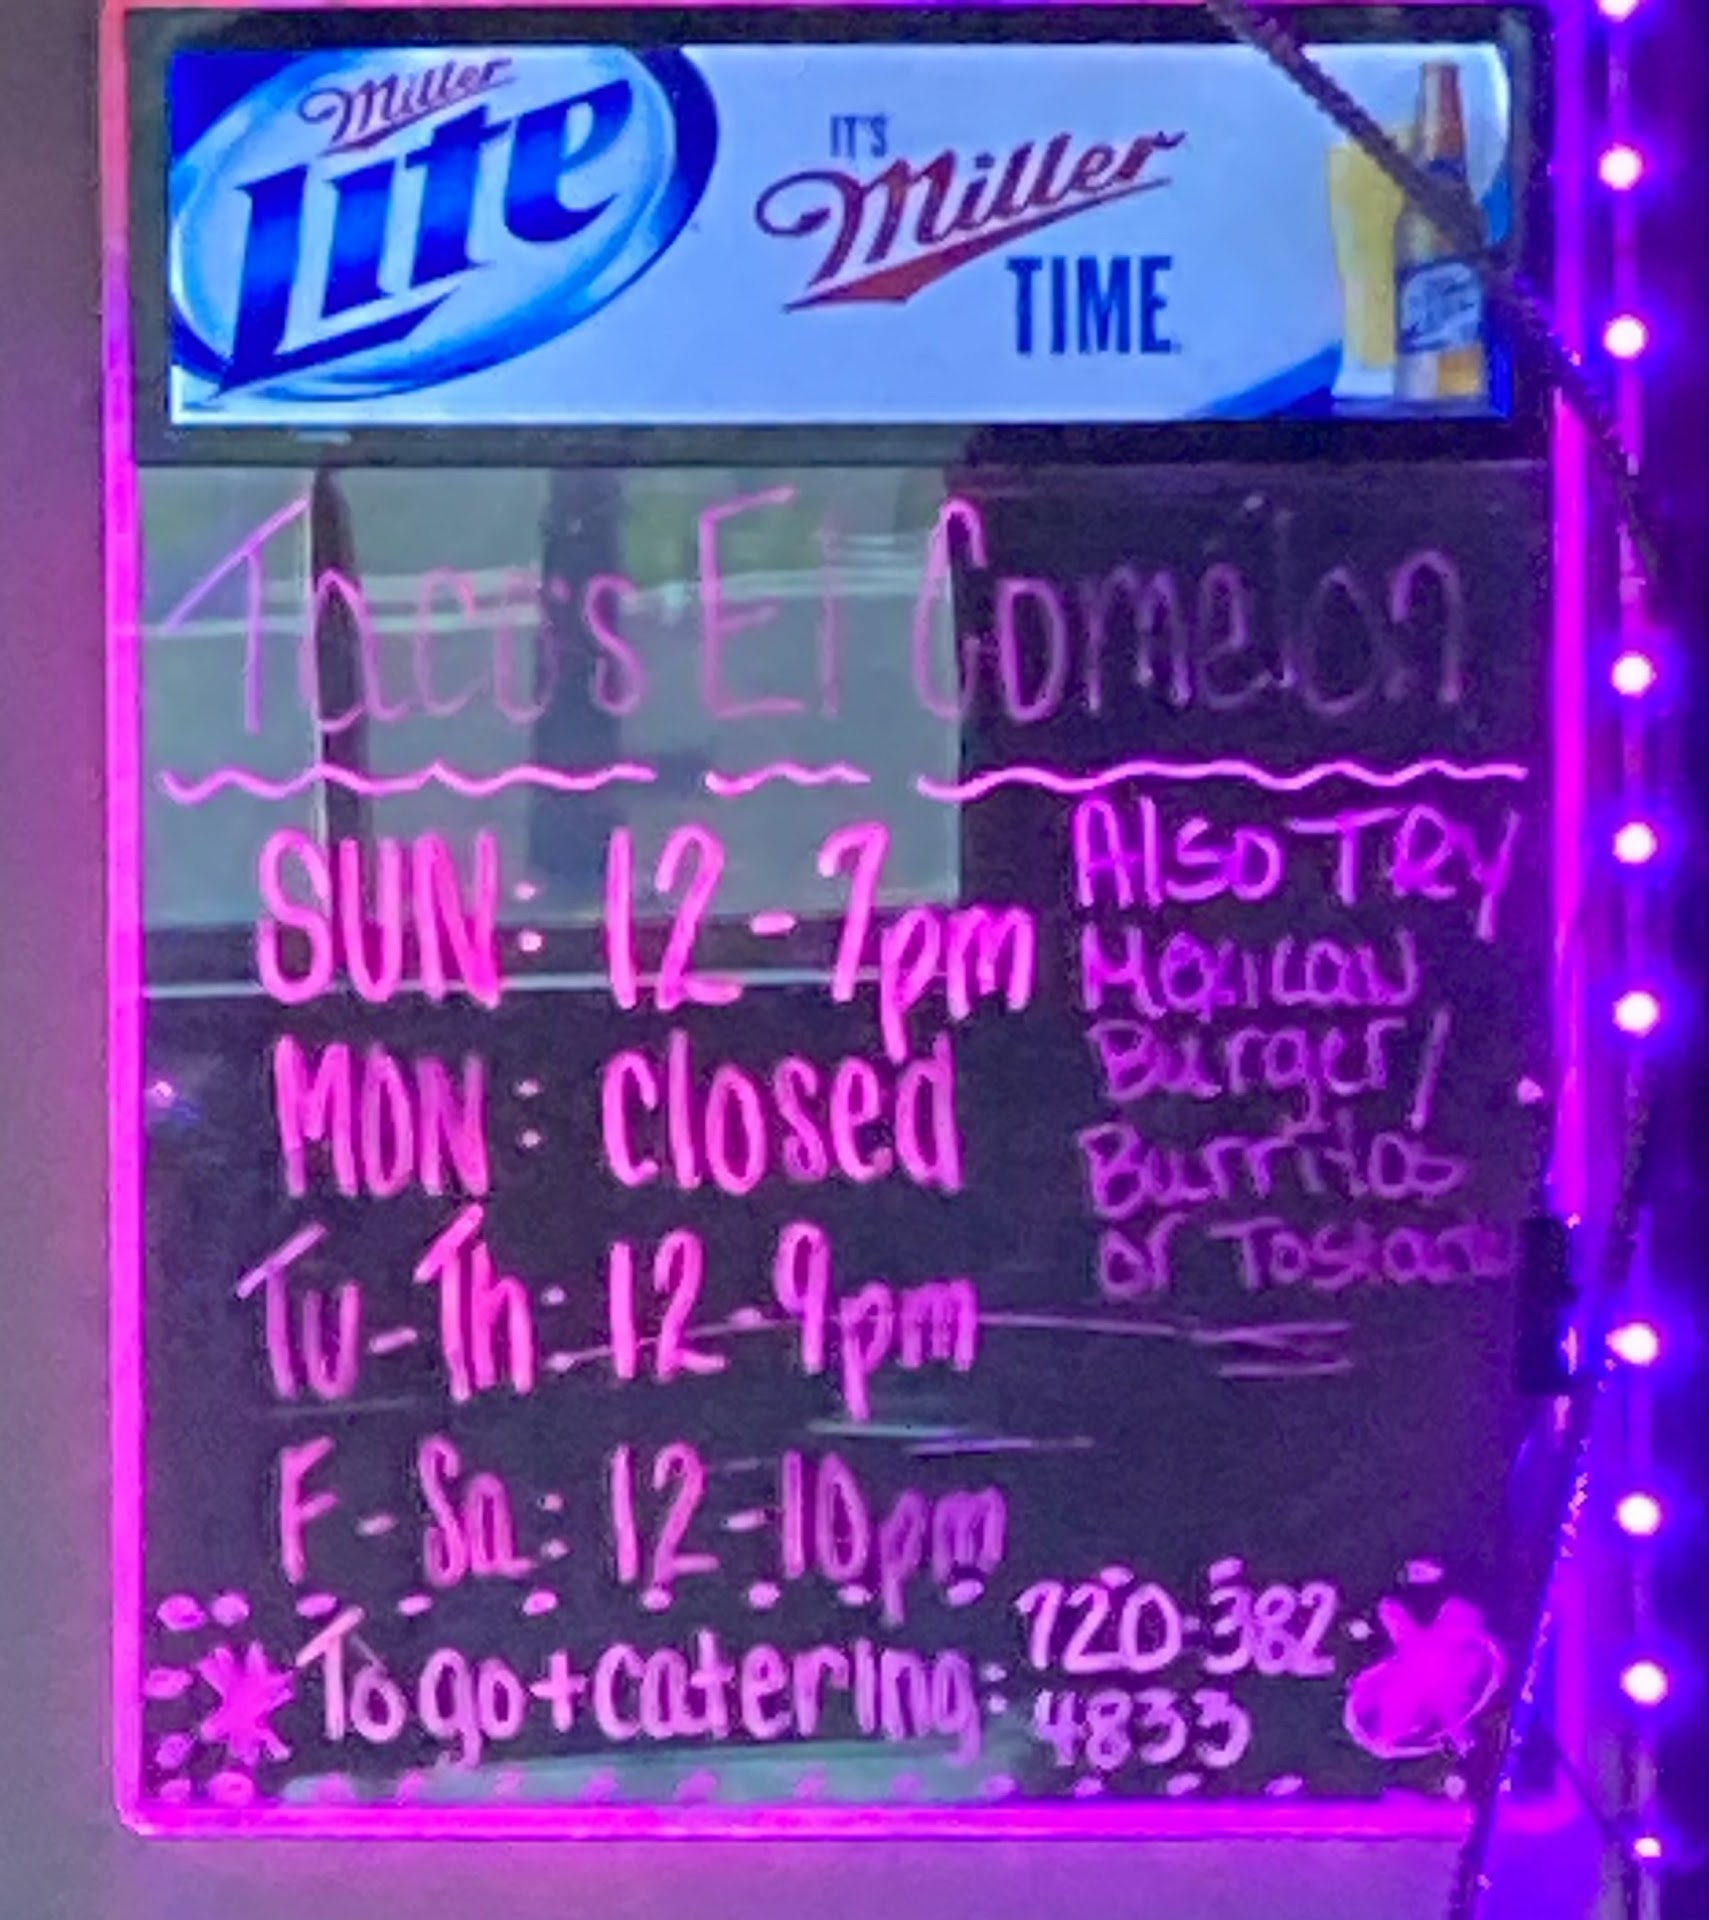 Miller
Lite
IT'S
Miller
TIME
Taco's El Comelon
SUN: 12-7pm
MON: closed
Tu-Th: 12-9pm
F-Sa: 12-10pm
Also TRY
Mexican
Burger/
Burritos
or Tostada
To go + catering: 720-382-
4833